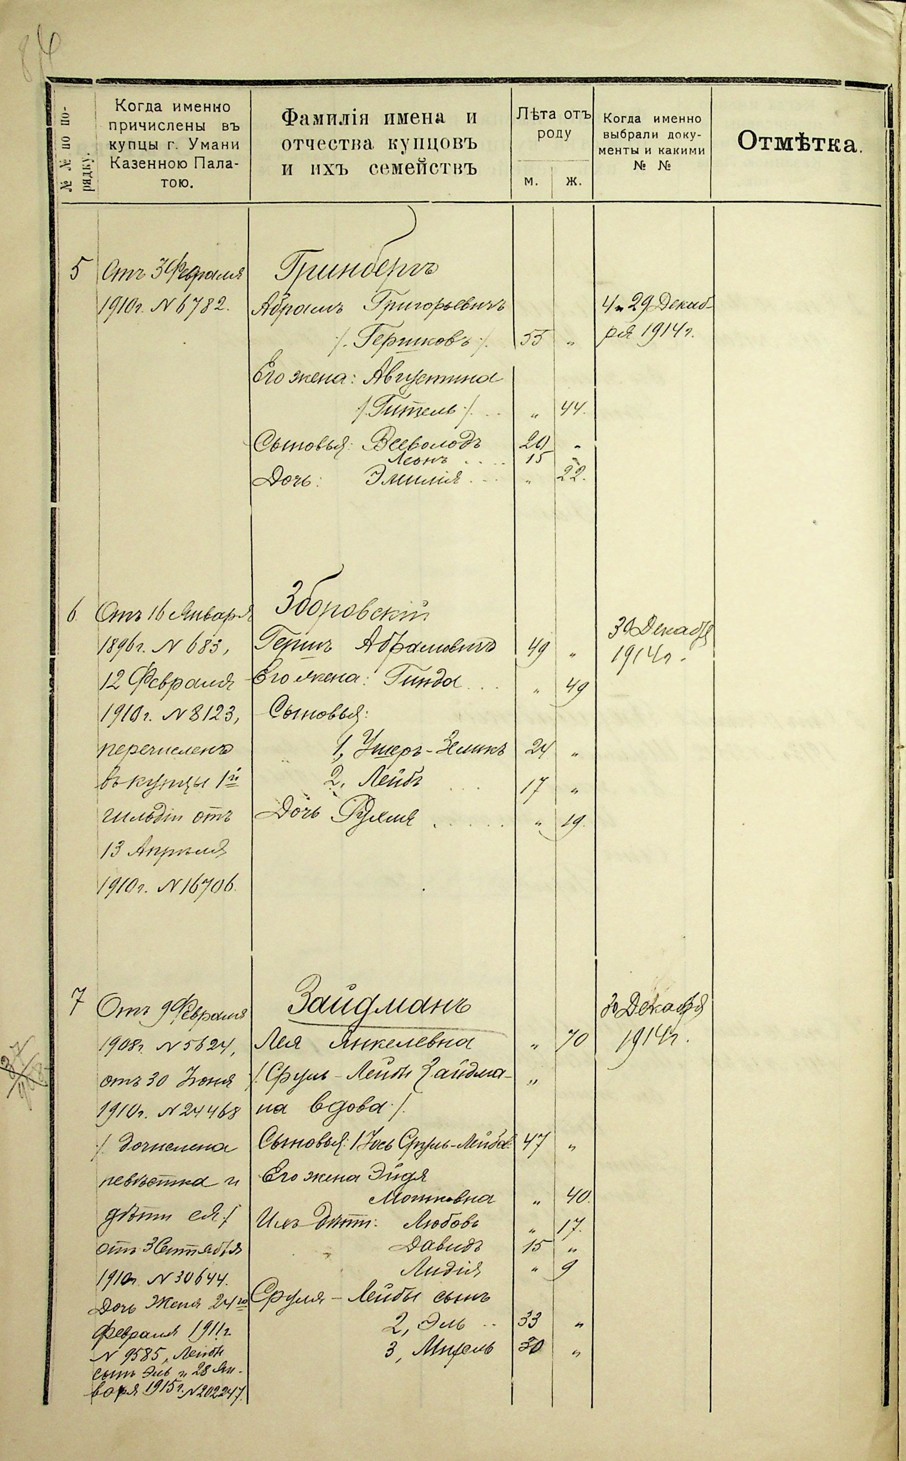 № № по по-
рядку.
Когда именно
причислены въ
купцы г. Умани
Казенною Пала-
тою.
Фамилія имена и
отчества купцовъ
и ихъ семействъ
Лѣта отъ
роду
м.
ж.
Когда именно
выбрали доку-
менты и какими
№ №
Отмѣтка.
5
Отъ 3 Февраля
1910г. № 6782.
Гринбергъ
Абрамъ Григорьевичъ
/. Гершковъ ./ 55 „
Его жена: Августина
/. Гитель ./ „ 44.
Сыновья: Всеволодъ 20 „
Леонъ 15 „
Дочь: Эмилія „ 22.
4 29 Декаб-
ря 1914г.
6
Отъ 16 Января
1896г. № 683,
12 Февраля
1910г. № 8123,
перечисленъ
въ купцы 1й
гильдіи отъ
13 Апрѣля
1910г. № 16706.
Зборовскій
Гершъ Абрамовичъ 49 „
Его жена: Гинда „ 49
Сыновья:
1, Ушеръ-Зеликъ 24 „
2, Лейбъ 17 „
Дочь „ 19.
30 Декабря
1914г.
7
Отъ 9 Февраля
1908г. № 5624,
отъ 30 Іюня
1910г. № 24468
/. дочислена
невѣстка и
дѣти ея /
отъ 3 Сентября
1910г. № 30644.
Дочь Женя 24го
Февраля 1911г.
№ 9585, Лейби
сынъ Эль и 28 Ян-
варя 1915г. № 202247.
Зайдманъ
Лея Янкелевна „ 70
/. Сруль-Лейби Зайдма- „
на вдова ./
Сыновья: 1 Іось Сруль-Лейбов 47 „
Его жена Эйдя
Мошковна „ 40
Ихъ дѣти: Любовь „ 17.
Давидъ 15 „
Лидія „ 9
Сруля-Лейбы сынъ
2, Эль 33 „
3, 30 „
30 Декабря
1914г.